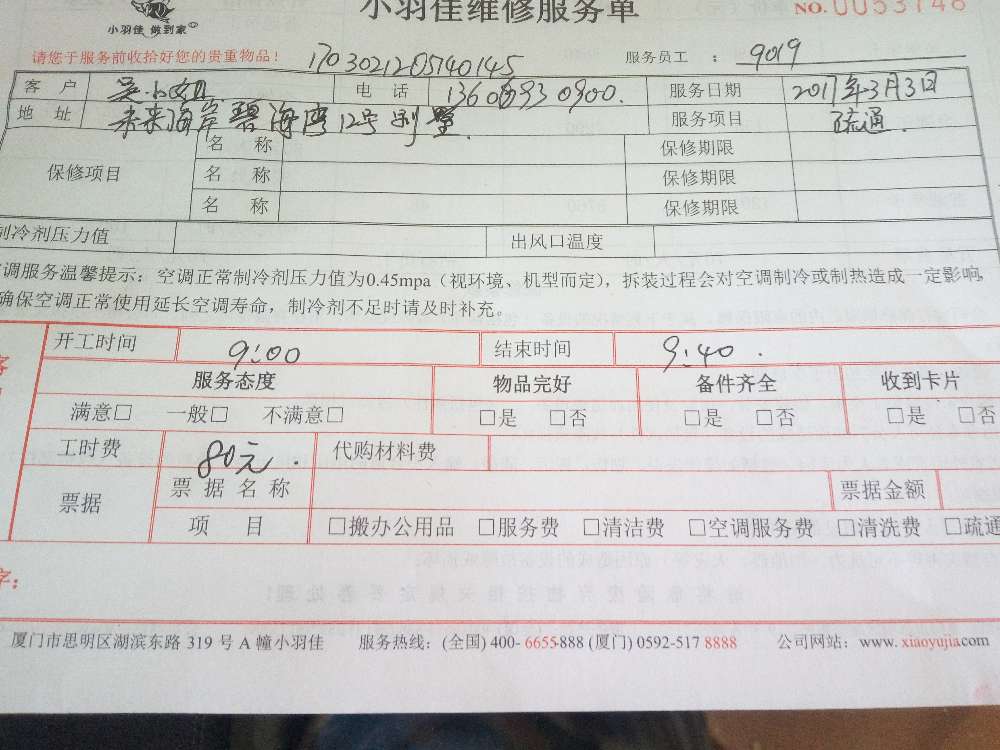 小羽佳维修服务单
NO.0053148
小羽佳 做到家
请您于服务前收拾好您的贵重物品！ 1703021205140145 服务员工 ： 9019
客 户 吴小姐 电 话 服务日期 2017年3月3日
地 址 未来海岸碧海湾12号别墅. 服务项目 疏通.
保修项目 名 称 保修期限
名 称 保修期限
名 称 保修期限
制冷剂压力值 出风口温度
调服务温馨提示：空调正常制冷剂压力值为0.45mpa（视环境、机型而定），拆装过程会对空调制冷或制热造成一定影响，
确保空调正常使用延长空调寿命，制冷剂不足时请及时补充。
开工时间 9:00 结束时间 9:40.
服务态度 物品完好 备件齐全 收到卡片
满意□ 一般□ 不满意□ □是 □否 □是 □否 □是 □否
工时费 80元. 代购材料费
票据 票 据 名 称 票据金额
项 目 □搬办公用品 □服务费 □清洁费 □空调服务费 □清洗费 □疏通
字：
厦门市思明区湖滨东路 319 号 A 幢小羽佳 服务热线：(全国) 400- 6655-888 (厦门) 0592-517 8888 公司网站：www. xiaoyujia.com